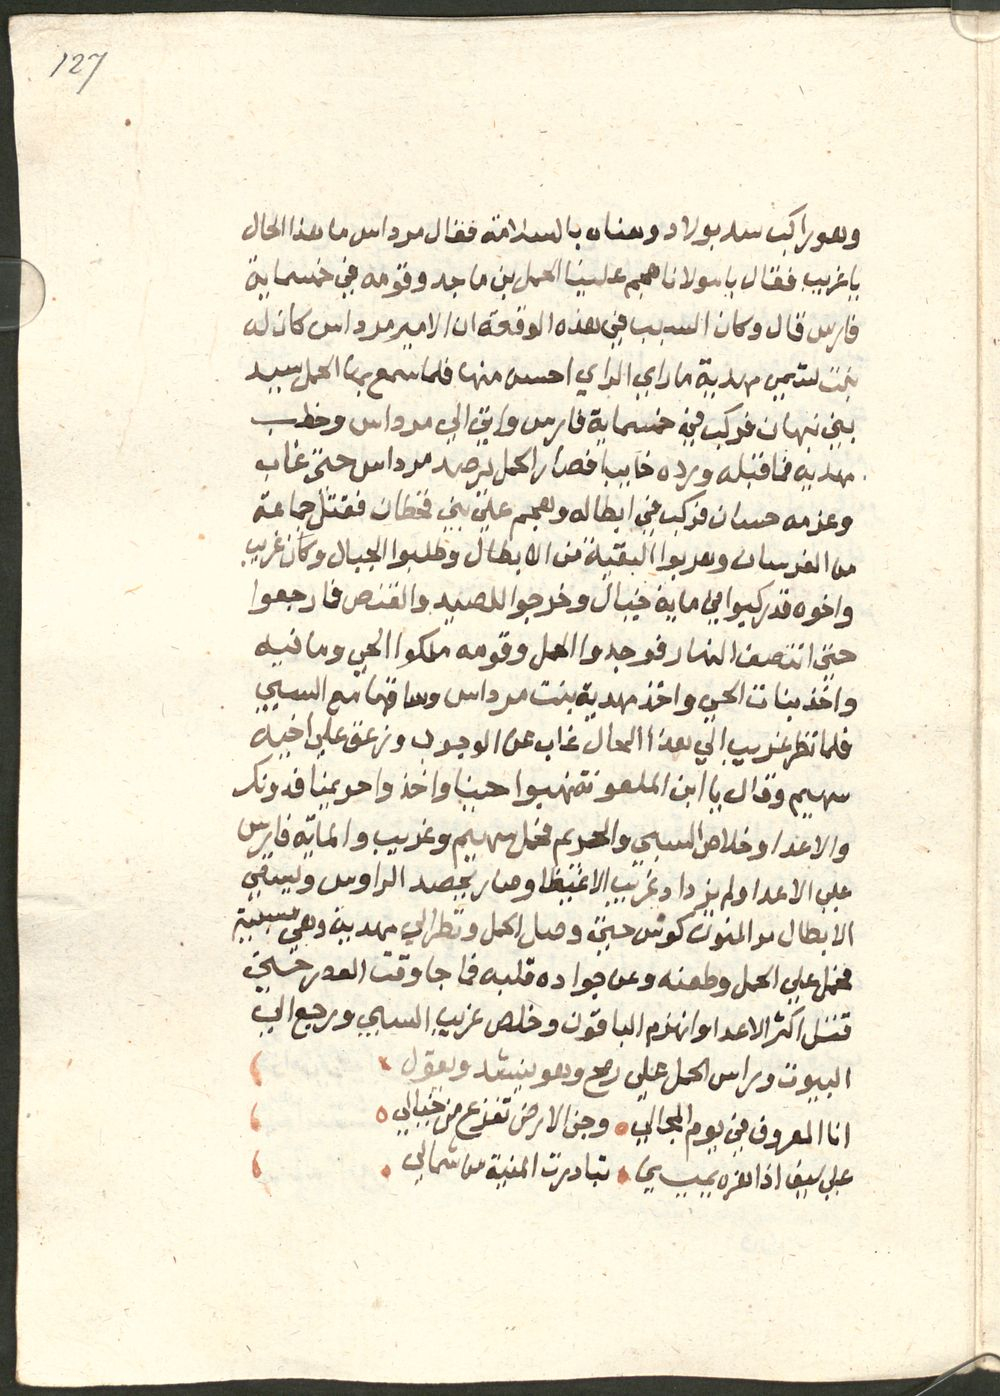 127
وهو راكب سد بولاد وهناه بالسلامة فقال مرداس ما هذا الحال
يا غريب فقال يا مولانا هجم علينا الحمل بن ماجد وقومه في خمسماية
فارس قال وكان السبب في هذه الوقعة ان الامير مرداس كان له
بنت تسمي مهدية ما راي الراي احسن منها فلما سمع بها الحمل سيد
بني نبهان فركب في خمسماية فارس واتي الي مرداس وخطب
مهدية فما قبله ورده خايبا فصار الحمل يرصد مرداس حتي غاب
وعزمه حسان فركب في ابطاله وهجم علي بني قحطان فقتل جماعة
من الفرسان وهربوا البقية من الابطال وطلبوا الجبال وكان غريب
واخوه قد ركبوا في ماية خيال وخرجوا للصيد والقنص فما رجعوا
حتي انتصف النهار فوجدوا الحمل وقومه ملكوا الحي وما فيه
واخذ بنات الحي واخذ مهدية بنت مرداس وساقها مع السبي
فلما نظر غريب الي هذا الحال غاب عن الوجود وزعق علي اخيه
سهيم وقال يا ابن الملعونة نهبوا حينا واخذوا حريمنا فدونك
والاعدا وخلاص السبي والحريم فحمل سهيم وغريب والمايه فارس
علي الاعدا ولم يزداد غريب الا غيظا وصار يحصد الراوس ويسقي
الابطال من المنون كوس حتي وصل الحمل ونظر الي مهدية وهي مسبية
فحمل علي الحمل وطعنه وعن جواده قلبه فما جا وقت العصر حتي
قتل اكثر الاعدا وانهزم الباقون وخلص غريب السبي ورجع الي
البيوت وراس الحمل علي رمح وهو ينشد ويقول
انا المعروف في يوم المجالي وجن الارض تفزع من خيالي
علي سيف اذا هزه يميني تبادرت المنية من شمالي